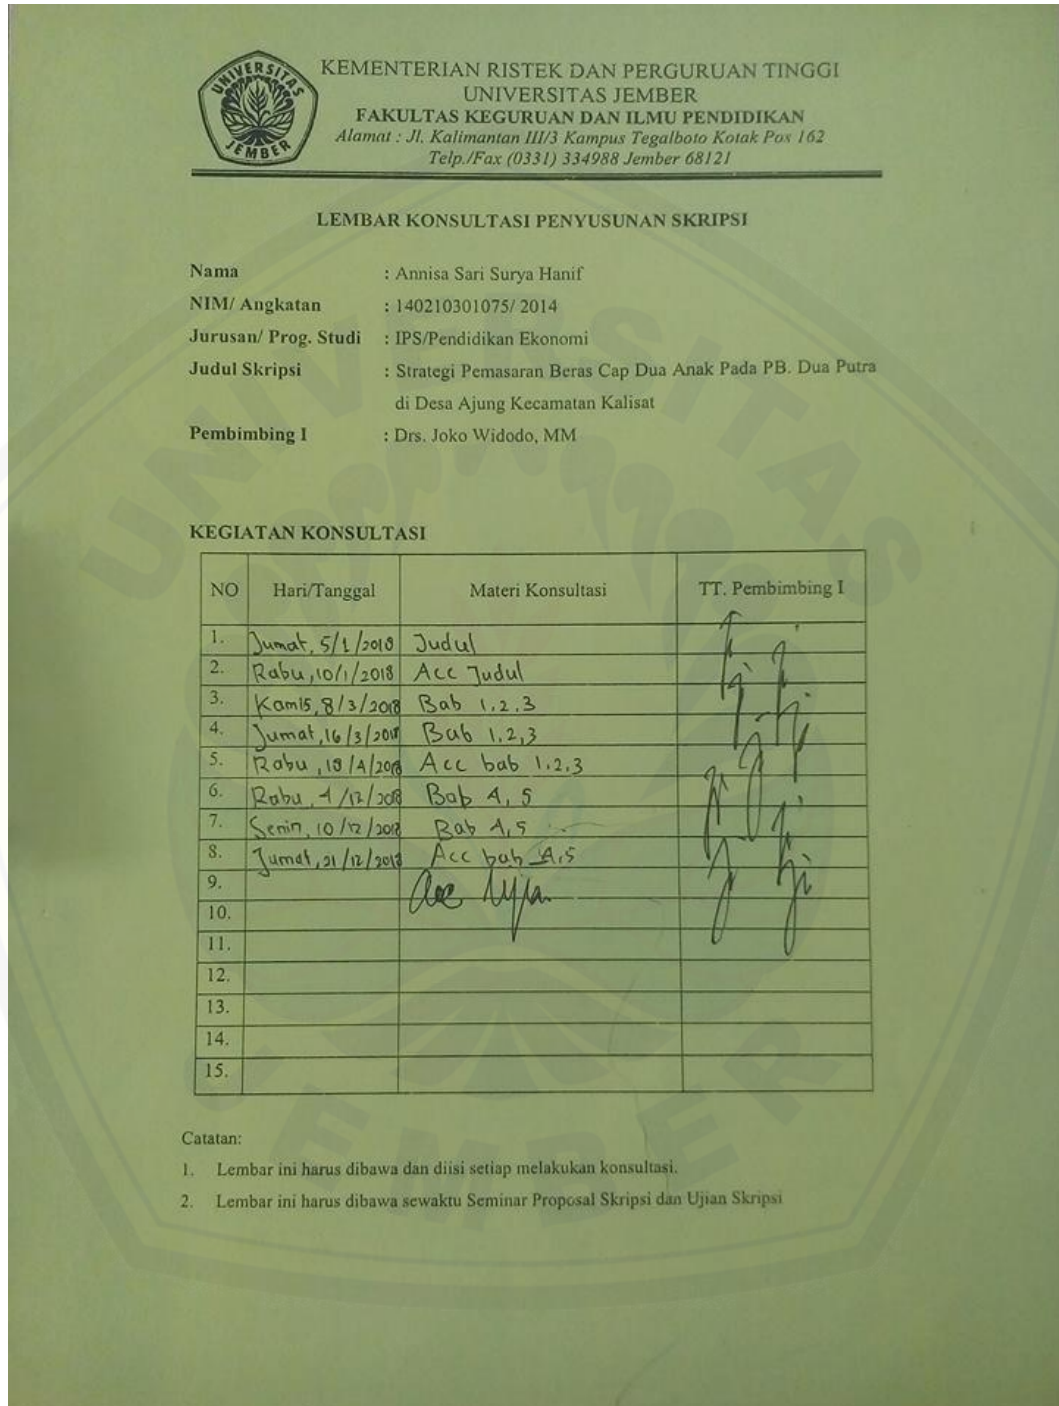 UNIVERSITAS
JEMBER
KEMENTERIAN RISTEK DAN PERGURUAN TINGGI
UNIVERSITAS JEMBER
FAKULTAS KEGURUAN DAN ILMU PENDIDIKAN
Alamat : Jl. Kalimantan III/3 Kampus Tegalboto Kotak Pos 162
Telp./Fax (0331) 334988 Jember 68121
LEMBAR KONSULTASI PENYUSUNAN SKRIPSI
Nama : Annisa Sari Surya Hanif
NIM/ Angkatan : 140210301075/ 2014
Jurusan/ Prog. Studi : IPS/Pendidikan Ekonomi
Judul Skripsi : Strategi Pemasaran Beras Cap Dua Anak Pada PB. Dua Putra
di Desa Ajung Kecamatan Kalisat
Pembimbing I : Drs. Joko Widodo, MM
KEGIATAN KONSULTASI
NO Hari/Tanggal Materi Konsultasi TT. Pembimbing I
1. Jumat, 5/1/2018 Judul
2. Rabu, 10/1/2018 Acc Judul
3. Kamis, 8/3/2018 Bab 1,2,3
4. Jumat, 16/3/2018 Bab 1,2,3
5. Rabu, /4/2018 Acc bab 1,2,3
6. Rabu, /12/2018 Bab 4, 5
7. Senin, 10/12/2018 Bab 4,5
8. Jumat, 21/12/2018 Acc bab 4,5
9. acc Ujian
10.
11.
12.
13.
14.
15.
Catatan:
1. Lembar ini harus dibawa dan diisi setiap melakukan konsultasi.
2. Lembar ini harus dibawa sewaktu Seminar Proposal Skripsi dan Ujian Skripsi
UNIVERSITAS
JEMBER